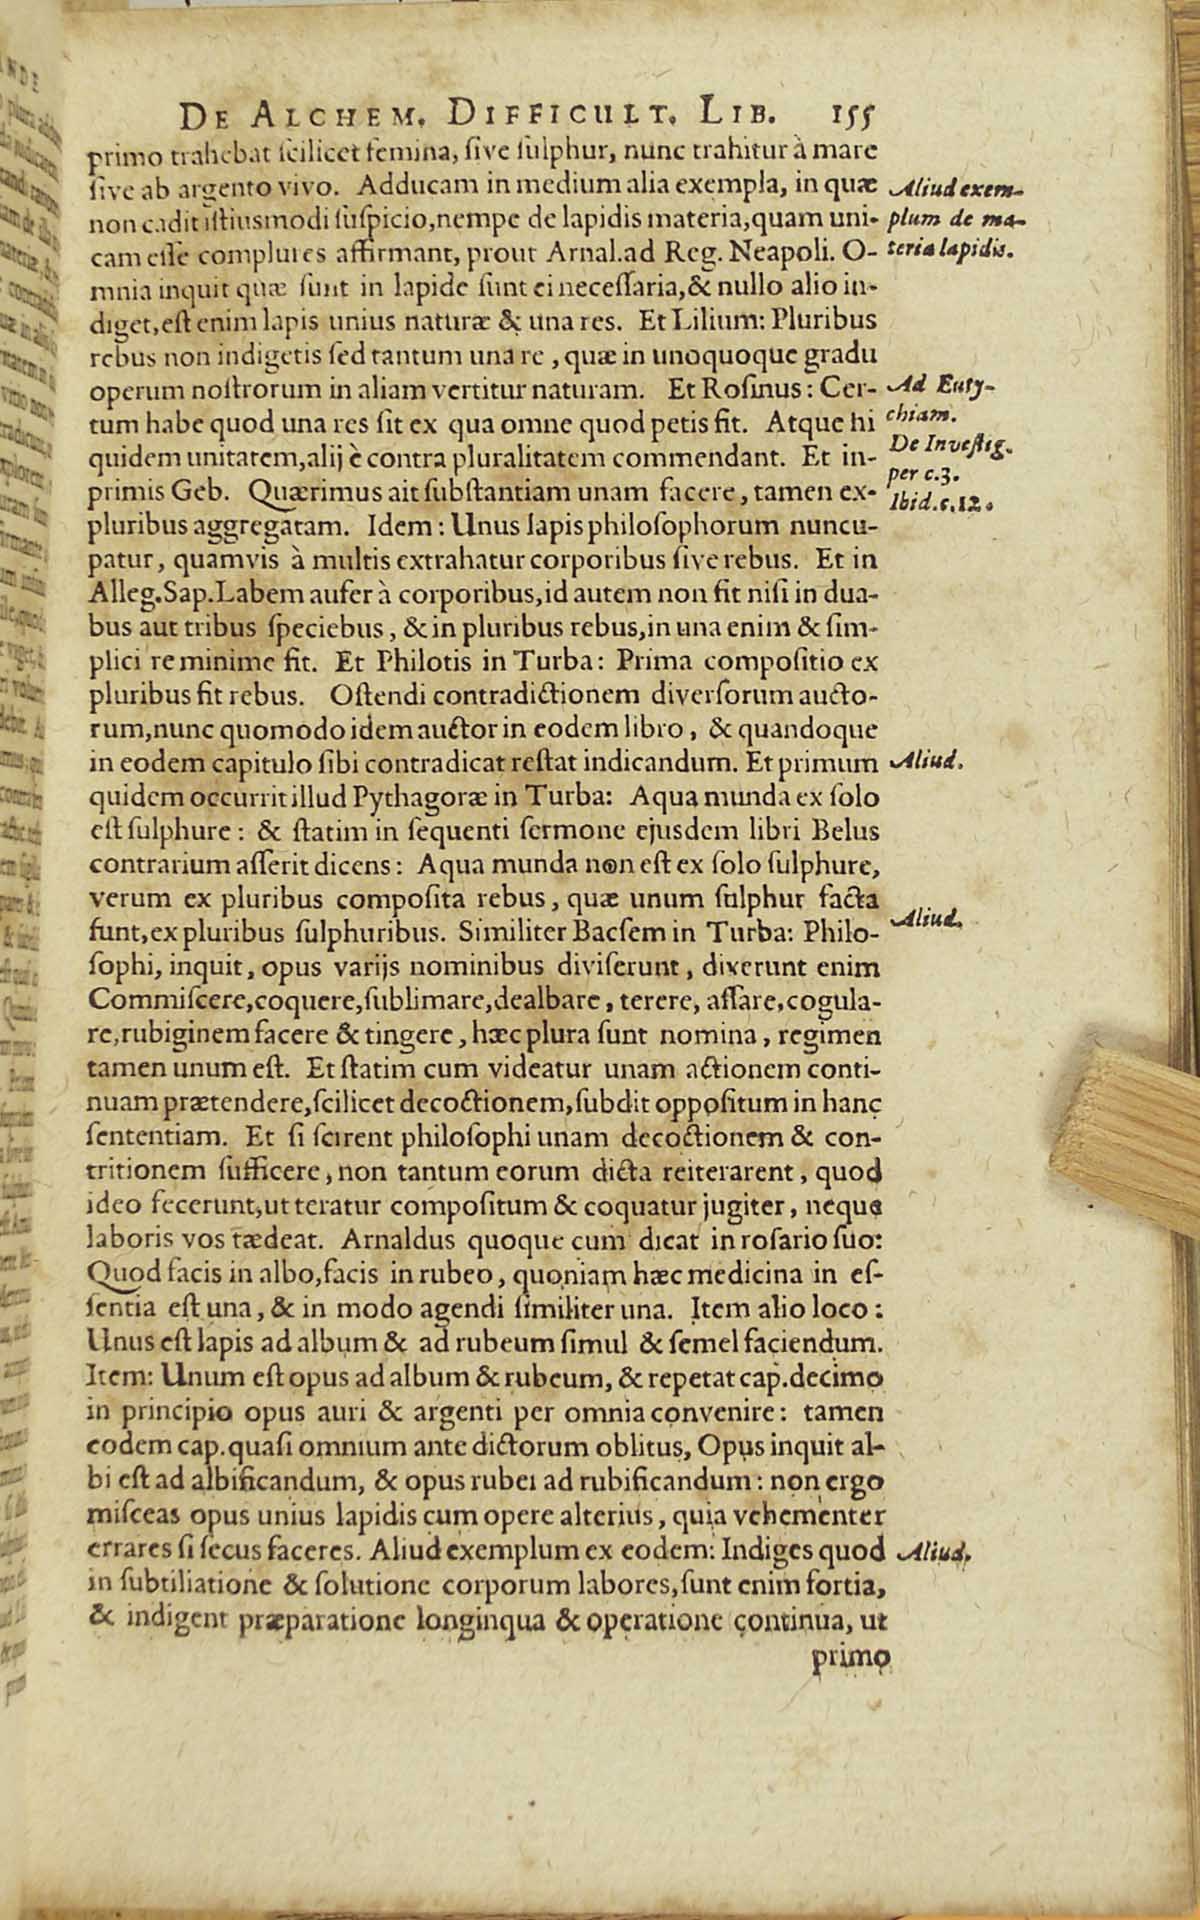 DE ALCHEM. DIFFICULT. LIB. 155
primo trahebat scilicet femina, sive sulphur, nunc trahitur à mare
sive ab argento vivo. Adducam in medium alia exempla, in quæ
non cadit istiusmodi suspicio, nempe de lapidis materia, quam uni-
cam esse complures affirmant, prout Arnal. ad Reg. Neapoli. O-
mnia inquit quæ sunt in lapide sunt ei necessaria, & nullo alio in-
diget, est enim lapis unius naturæ & una res. Et Lilium: Pluribus
rebus non indigetis sed tantum una re, quæ in unoquoque gradu
operum nostrorum in aliam vertitur naturam. Et Rosinus: Cer-
tum habe quod una res sit ex qua omne quod petis fit. Atque hi
quidem unitatem, alij è contra pluralitatem commendant. Et in-
primis Geb. Quærimus ait substantiam unam facere, tamen ex-
pluribus aggregatam. Idem: Unus lapis philosophorum nuncu-
patur, quamvis à multis extrahatur corporibus sive rebus. Et in
Alleg. Sap. Labem aufer à corporibus, id autem non fit nisi in dua-
bus aut tribus speciebus, & in pluribus rebus, in una enim & sim-
plici re minime fit. Et Philotis in Turba: Prima compositio ex
pluribus fit rebus. Ostendi contradictionem diversorum aucto-
rum, nunc quomodo idem auctor in eodem libro, & quandoque
in eodem capitulo sibi contradicat restat indicandum. Et primum
quidem occurrit illud Pythagoræ in Turba: Aqua munda ex solo
est sulphure: & statim in sequenti sermone ejusdem libri Belus
contrarium asserit dicens: Aqua munda non est ex solo sulphure,
verum ex pluribus composita rebus, quæ unum sulphur facta
sunt, ex pluribus sulphuribus. Similiter Bacsem in Turba: Philo-
sophi, inquit, opus varijs nominibus diviserunt, dixerunt enim
Commiscere, coquere, sublimare, dealbare, terere, assare, cogula-
re, rubiginem facere & tingere, hæc plura sunt nomina, regimen
tamen unum est. Et statim cum videatur unam actionem conti-
nuam prætendere, scilicet decoctionem, subdit oppositum in hanc
sententiam. Et si scirent philosophi unam decoctionem & con-
tritionem sufficere, non tantum eorum dicta reiterarent, quod
ideo fecerunt, ut teratur compositum & coquatur jugiter, neque
laboris vos tædeat. Arnaldus quoque cum dicat in rosario suo:
Quod facis in albo, facis in rubeo, quoniam hæc medicina in es-
sentia est una, & in modo agendi similiter una. Item alio loco:
Unus est lapis ad album & ad rubeum simul & semel faciendum.
Item: Unum est opus ad album & rubeum, & repetat cap. decimo
in principio opus auri & argenti per omnia convenire: tamen
eodem cap. quasi omnium ante dictorum oblitus, Opus inquit al-
bi est ad albificandum, & opus rubei ad rubificandum: non ergo
misceas opus unius lapidis cum opere alterius, quia vehementer
errares si secus faceres. Aliud exemplum ex eodem: Indiges quod
in subtiliatione & solutione corporum labores, sunt enim fortia,
& indigent præparatione longinqua & operatione continua, ut
primo
Aliud exem-
plum de ma-
teria lapidis.
Ad Euty-
chiam.
De Investig.
per c.3.
Ibid. c.12.
Aliud.
Aliud.
Aliud.